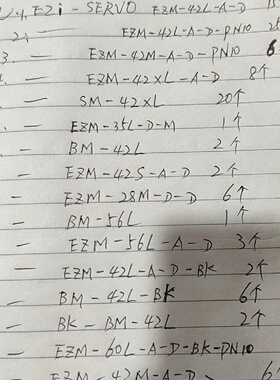 1. EZi-SERVO EZM-42L-A-D
2. EZM-42L-A-D-PN10
3. — EZM-42M-A-D-PN10 6
— EZM-42XL-A-D 8个
— SM-42XL 20个
— EZM-35L-D-M 1个
— BM-42L 2个
— EZM-42S-A-D 2个
— EZM-28M-D-D 6个
— BM-56L 1个
— EZM-56L-A-D 3个
— EZM-42L-A-D-BK 2个
— BM-42L-BK 6个
— BK-BM-42L 2个
— EZM-60L-A-D-BK-PN10
EZM-42M-A-D